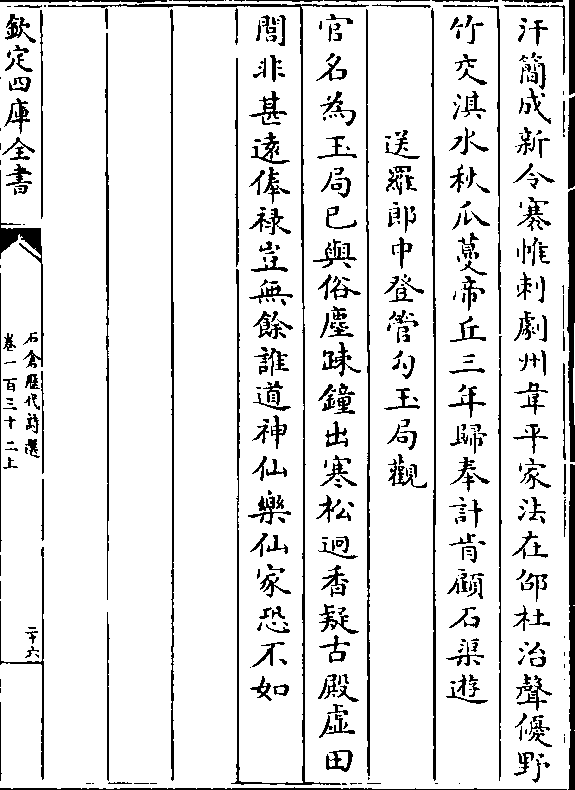 汗簡成新令褰帷刺劇州韋平家法在邵杜治聲優野
竹交淇水秋瓜蔓帝丘三年歸奉計肯顧石渠遊
送羅郎中登管勾玉局觀
官名為玉局已與俗塵疎鐘出寒松迥香疑古殿虛田
閭非甚遠俸祿豈無餘誰道神仙樂仙家恐不如
欽定四庫全書
石倉歷代詩選
卷一百三十二上
二十六